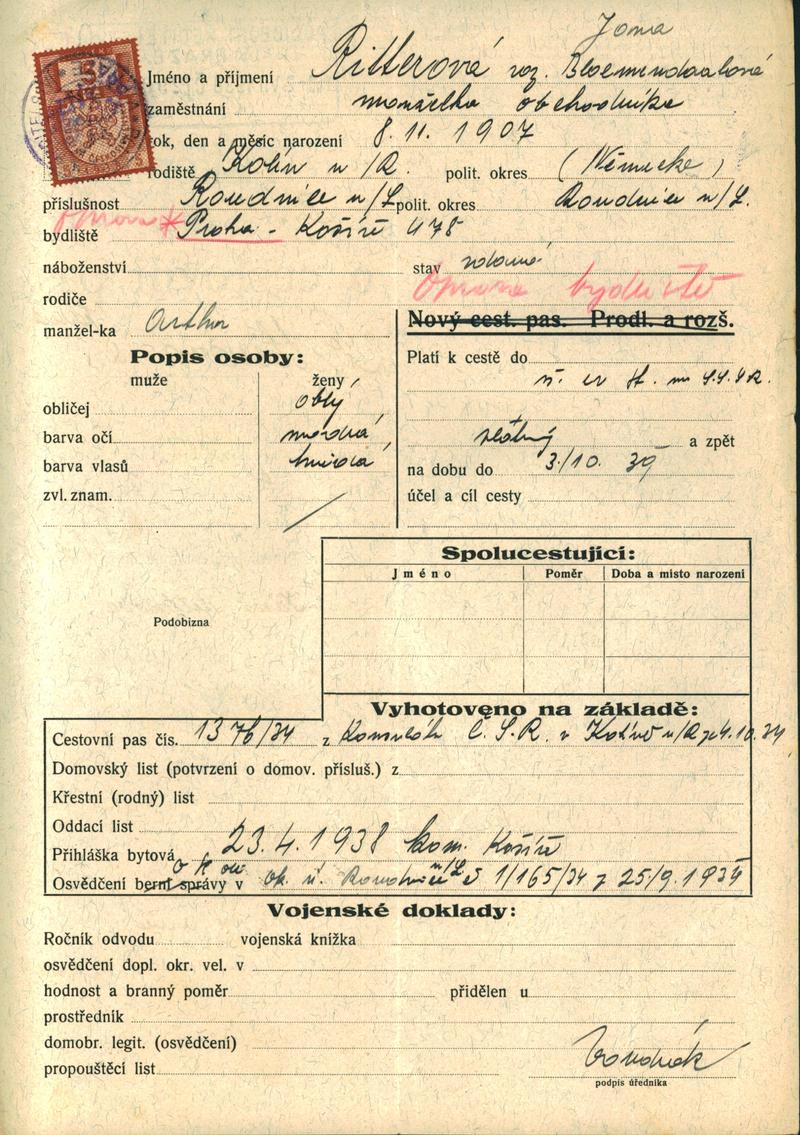 Joma
Jméno a příjmení Ritterová roz. Bloemendaalová
zaměstnání manželka obchodníka
rok, den a měsíc narození 8. 11. 1907
rodiště Kolín n/R. polit. okres (Německo)
příslušnost Roudnice n/L. polit. okres Roudnice n/L.
oprava *
bydliště Praha - Košíře 478
náboženství stav vdaná
oprava bydliště
rodiče
manžel-ka Arthur
Nový cest. pas. Prodl. a rozš.
Popis osoby:
muže ženy
obličej oblý
barva očí modrá
barva vlasů hnědá
zvl. znam.
Platí k cestě do
a zpět
na dobu do 3./10. 39
účel a cíl cesty
Spolucestující:
Jméno Poměr Doba a místo narození
Podobizna
Vyhotoveno na základě:
Cestovní pas čís. 1376/34 z Konsulát Č.S.R. v Kolíně n/R z 4.10.34
Domovský list (potvrzení o domov. přísluš.) z
Křestní (rodný) list
Oddací list
Přihláška bytová 23.4.1938 kom. Košíře
Osvědčení berní správy v ok. ú. Roudnice n/L č 1/165/34 z 25/9. 1934
Vojenské doklady:
Ročník odvodu vojenská knížka
osvědčení dopl. okr. vel. v
hodnost a branný poměr přidělen u
prostředník
domobr. legit. (osvědčení)
propouštěcí list
podpis úředníka